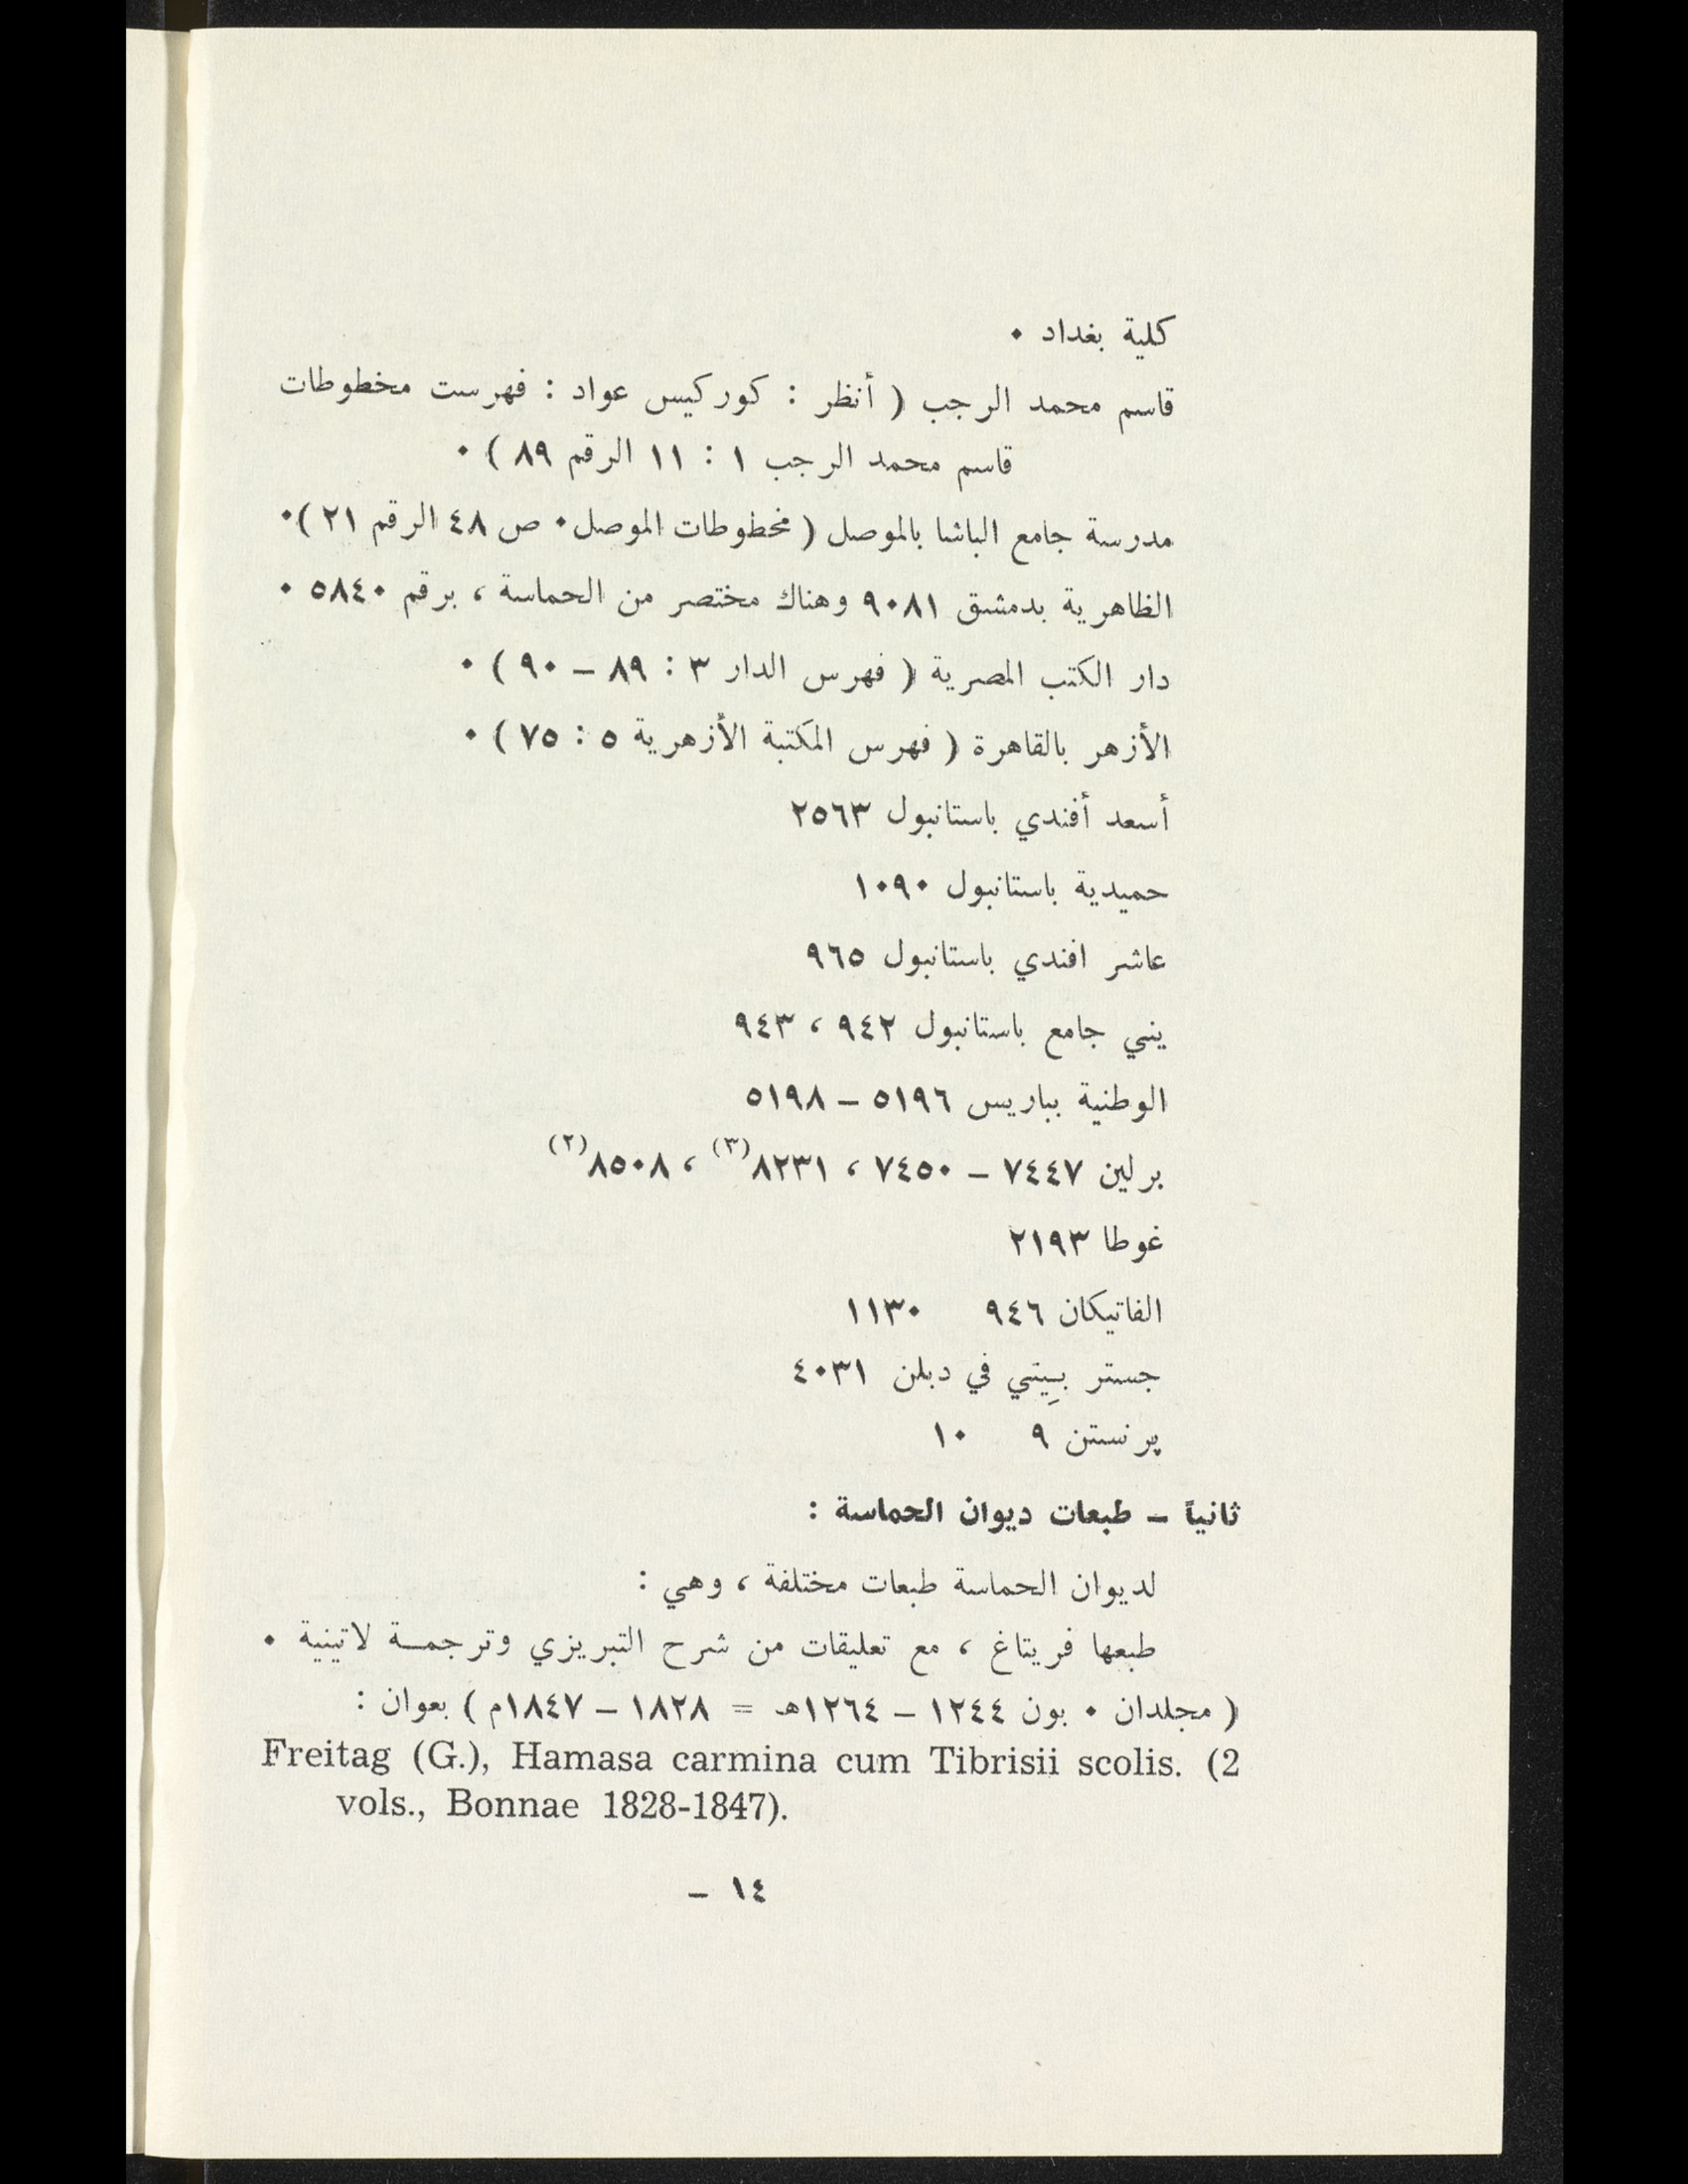 كلية بغداد ٠
قاسم محمد الرجب ( أنظر : كوركيس عواد : فهرست مخطوطات
قاسم محمد الرجب ١ : ١١ الرقم ٨٩ ) ٠
مدرسة جامع الباشا بالموصل ( مخطوطات الموصل٠ ص ٤٨ الرقم ٢١ )٠
الظاهرية بدمشق ٩٠٨١ وهناك مختصر من الحماسة ، برقم ٥٨٤٠ ٠
دار الكتب المصرية ( فهرس الدار ٣ : ٨٩ – ٩٠ ) ٠
الأزهر بالقاهرة ( فهرس المكتبة الأزهرية ٥ : ٧٥ ) ٠
أسعد أفندي باستانبول ٢٥٦٣
حميدية باستانبول ١٠٩٠
عاشر افندي باستانبول ٩٦٥
يني جامع باستانبول ٩٤٢ ، ٩٤٣
الوطنية بباريس ٥١٩٦ – ٥١٩٨
برلين ٧٤٤٧ – ٧٤٥٠ ، ٨٢٣١(٣) ، ٨٥٠٨(٢)
غوطا ٢١٩٣
الفاتيكان ٩٤٦ ١١٣٠
جستر بِيتي في دبلن ٤٠٣١
پرنستن ٩ ١٠
ثانياً – طبعات ديوان الحماسة :
لديوان الحماسة طبعات مختلفة ، وهي :
طبعها فريتاغ ، مع تعليقات من شرح التبريزي وترجمـــة لاتينية ٠
( مجلدان ٠ بون ١٢٤٤ – ١٢٦٤هـ = ١٨٢٨ – ١٨٤٧م ) بعوان :
Freitag (G.), Hamasa carmina cum Tibrisii scolis. (2
vols., Bonnae 1828-1847).
١٤ –